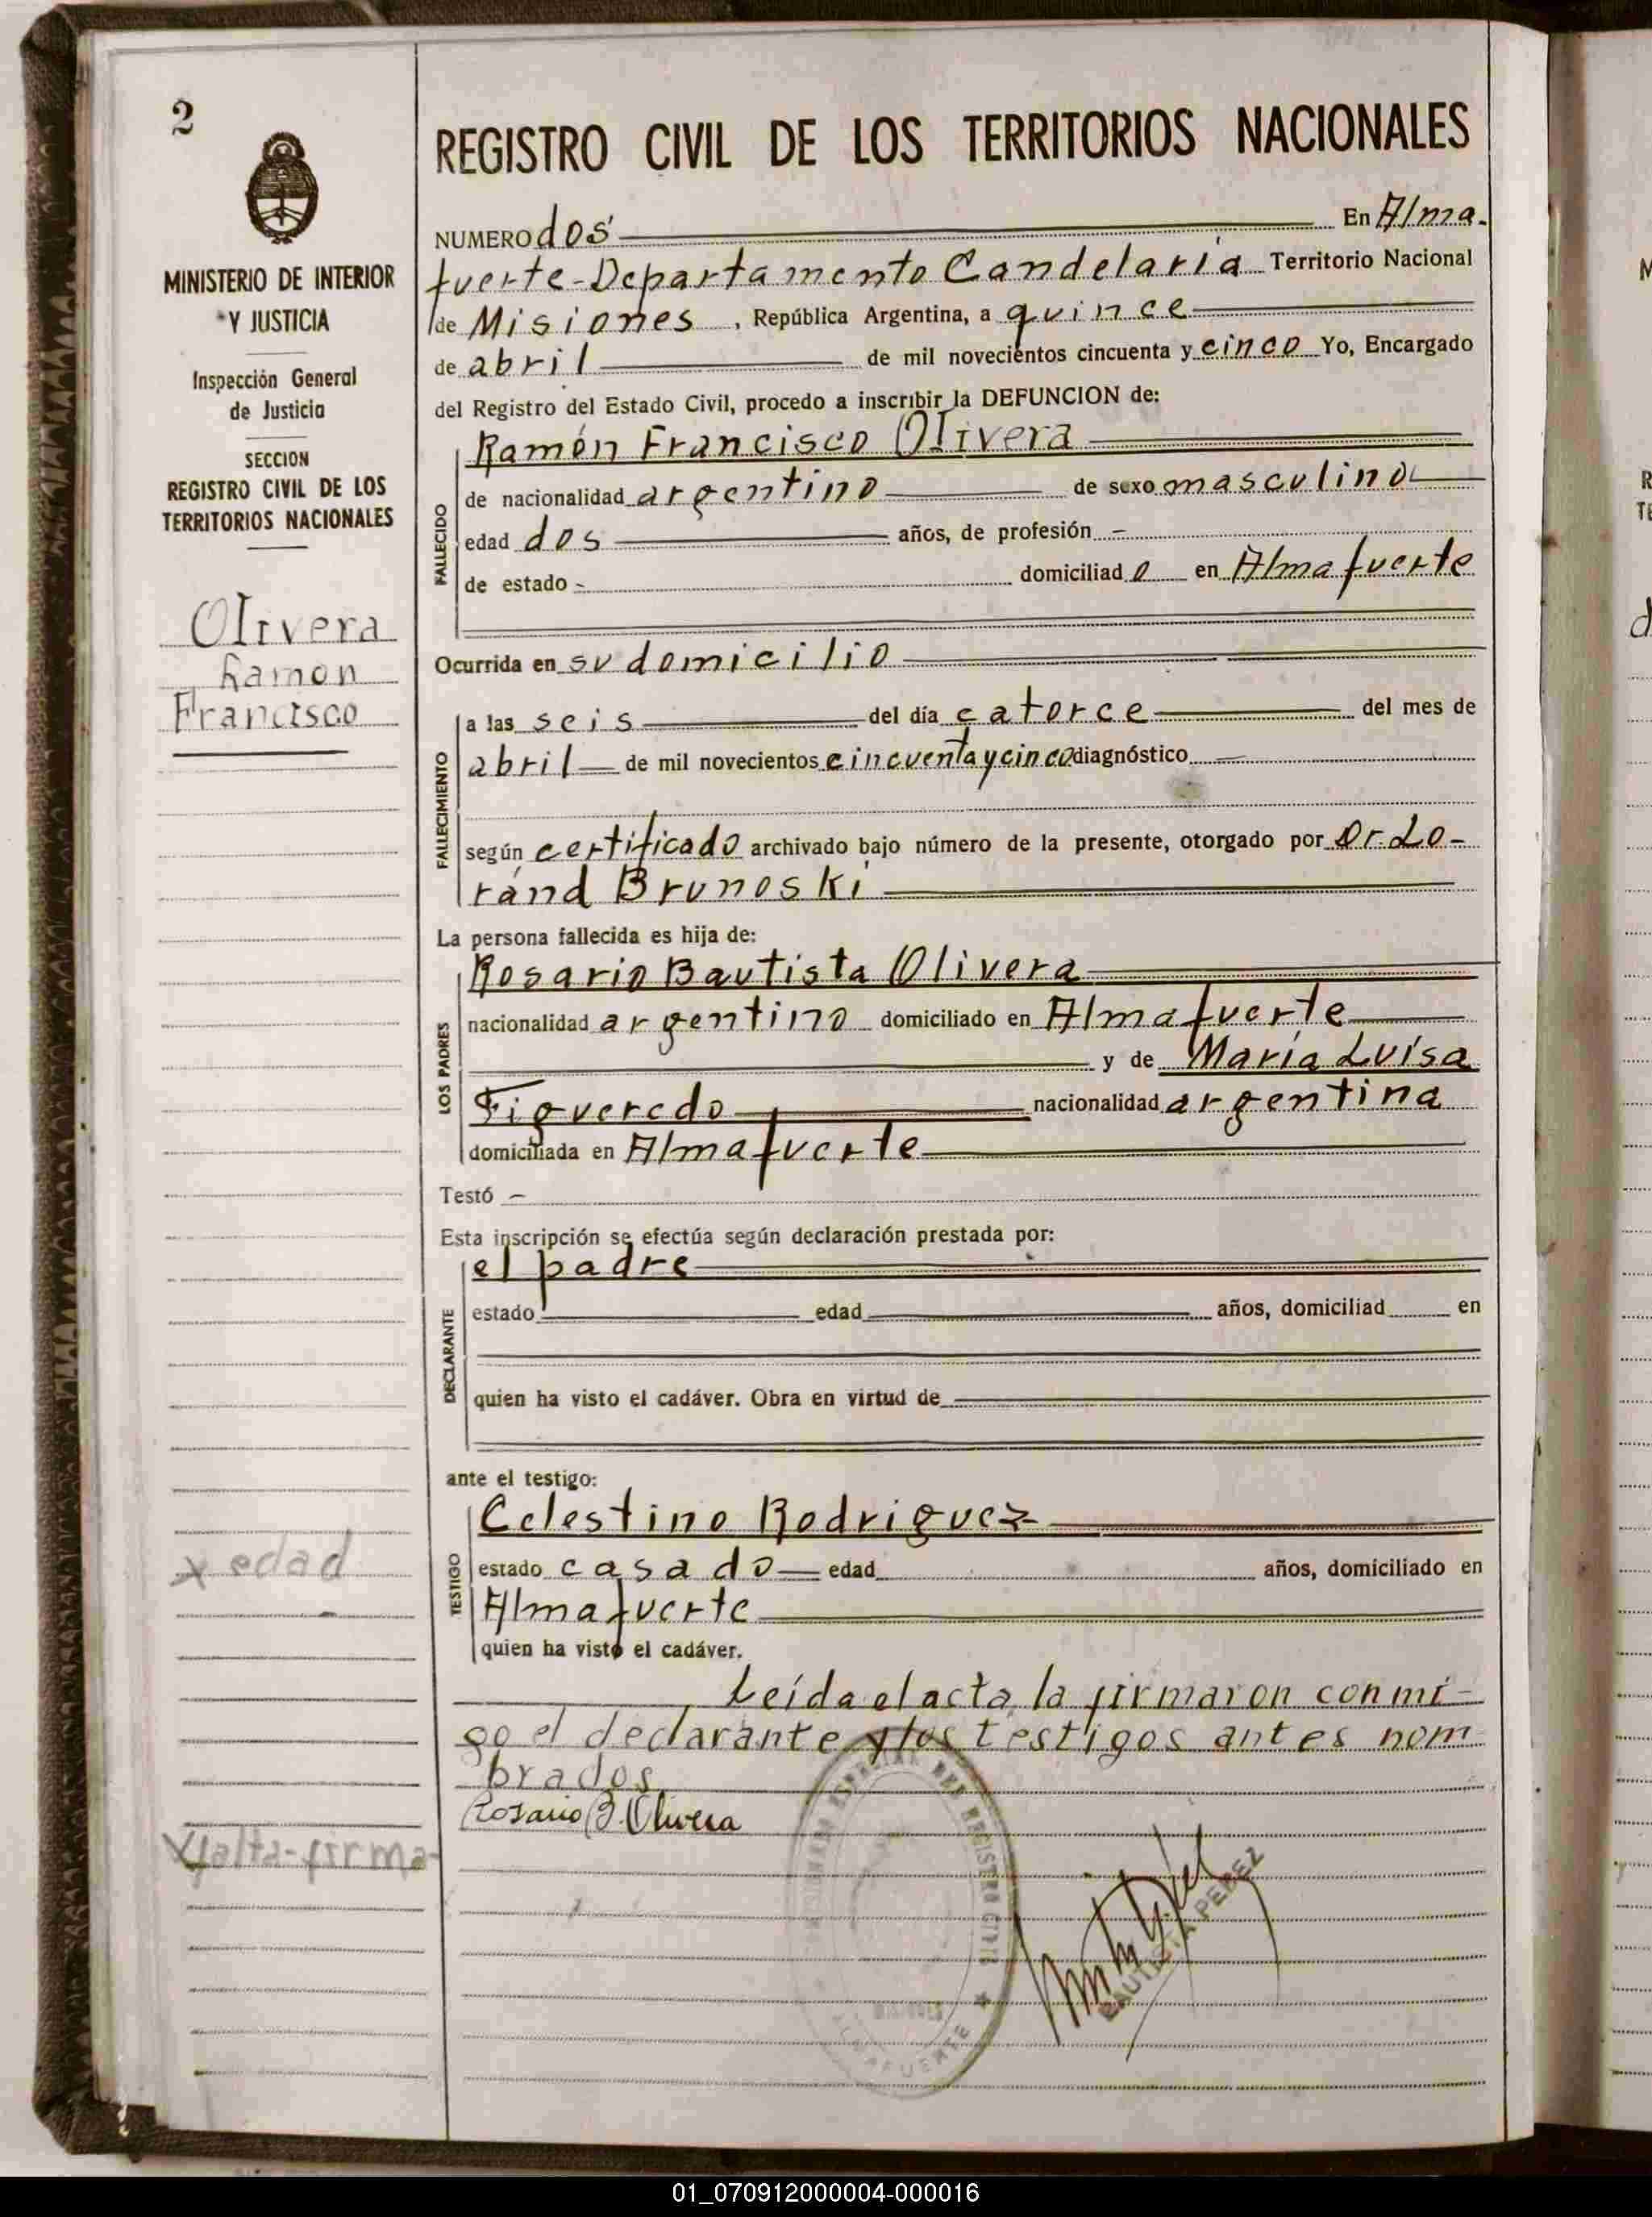 2
MINISTERIO DE INTERIOR
Y JUSTICIA
Inspección General
de Justicia
SECCION
REGISTRO CIVIL DE LOS
TERRITORIOS NACIONALES
Olivera
Ramon
Francisco
x edad
x falta-firma-
REGISTRO CIVIL DE LOS TERRITORIOS NACIONALES
NUMERO dos En Alma-
fuerte-Departamento Candelaria Territorio Nacional
de Misiones, República Argentina, a quince
de abril de mil novecientos cincuenta y cinco Yo, Encargado
del Registro del Estado Civil, procedo a inscribir la DEFUNCION de:
FALLECIDO
Ramón Francisco Olivera
de nacionalidad argentino de sexo masculino
edad dos años, de profesión -
de estado - domiciliado en Almafuerte
Ocurrida en su domicilio
FALLECIMIENTO
a las seis del día catorce del mes de
abril de mil novecientos cincuenta y cinco diagnóstico
según certificado archivado bajo número de la presente, otorgado por Dr. Lo-
ránd Brunoski
La persona fallecida es hija de:
LOS PADRES
Rosario Bautista Olivera
nacionalidad argentino domiciliado en Almafuerte
y de María Luísa
Figueredo nacionalidad argentina
domiciliada en Almafuerte
Testó -
Esta inscripción se efectúa según declaración prestada por:
DECLARANTE
el padre
estado edad años, domiciliad en
quien ha visto el cadáver. Obra en virtud de
ante el testigo:
TESTIGO
Celestino Rodriguez
estado casado edad años, domiciliado en
Almafuerte
quien ha visto el cadáver.
Leída el acta, la firmaron conmi-
go el declarante y los testigos antes nom
brados
Rosario B. Olivera
DEL REGISTRO CIVIL
ALMAFUERTE
BAUTISTA PEREZ
01_070912000004-000016